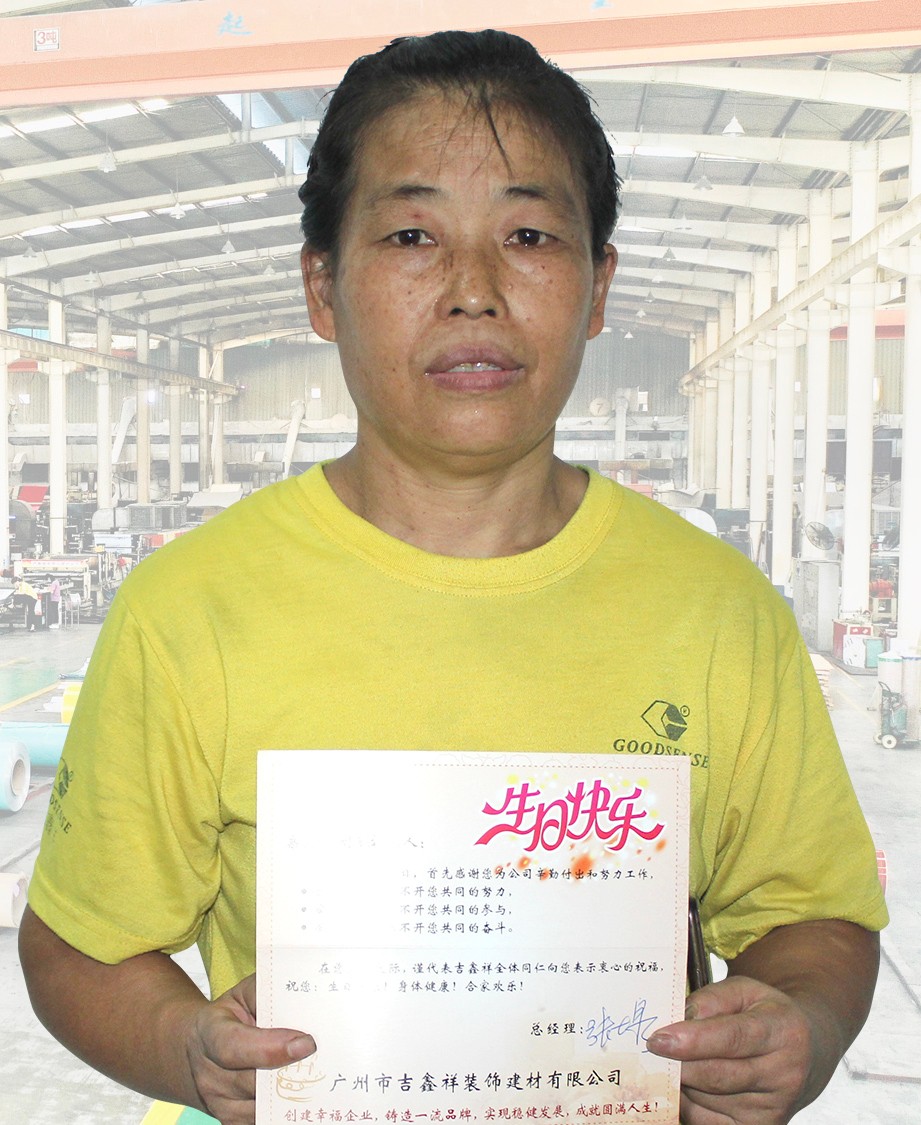 3吨
起
GOODSENSE
生日快乐
人：
，首先感谢您为公司辛勤付出和努力工作，
不开您共同的努力，
不开您共同的参与，
不开您共同的奋斗。
在 际，谨代表吉鑫祥全体同仁向您表示衷心的祝福，
祝您：生 ！身体健康！合家欢乐！
总经理：
广州市吉鑫祥装饰建材有限公司
创建幸福企业，铸造一流品牌，实现稳健发展，成就圆满人生！